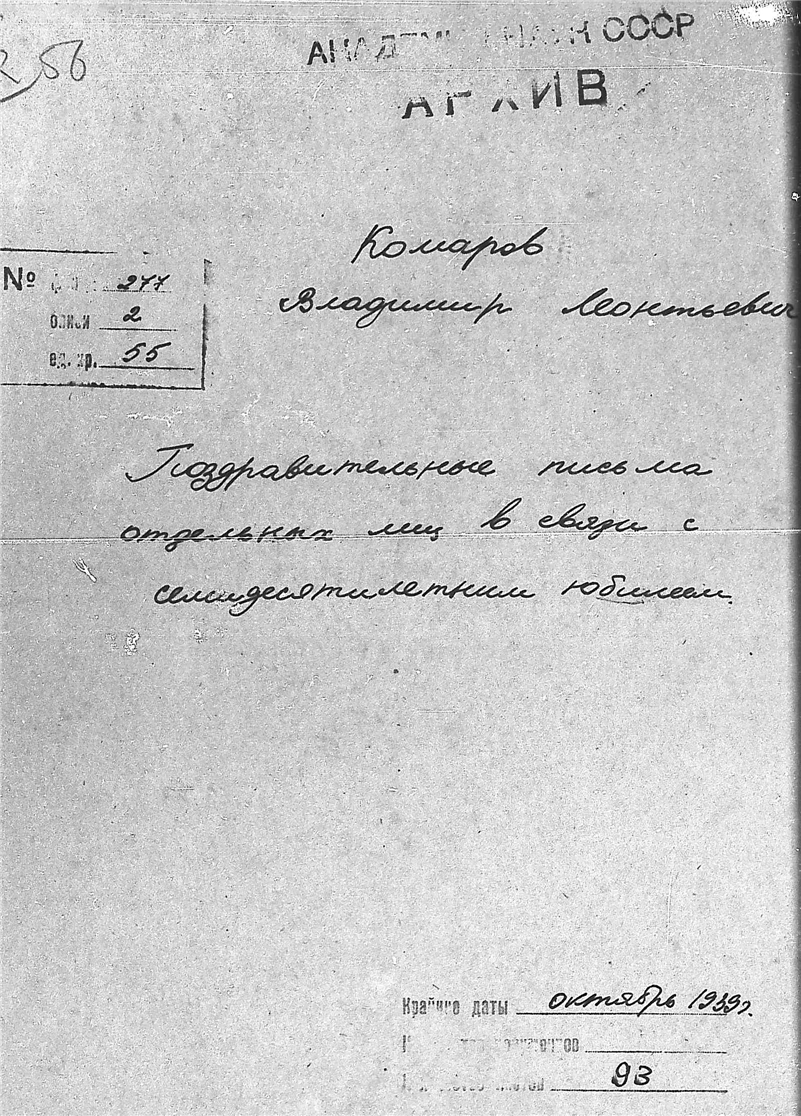 56
АКАДЕМИ НАУК СССР
АРХИВ
Комаров
Владимир Леонтьевич
№ 277
описи 2
ед. хр. 55
Поздравительные письма
отдельных лиц в связи с
семидесятилетним юбилеем.
Крайние даты октябрь 1939г.
93